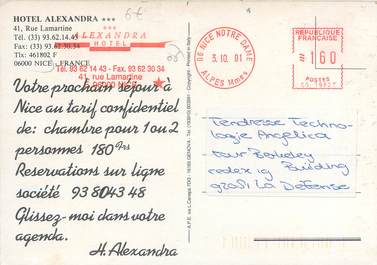 HOTEL ALEXANDRA ***
41, Rue Lamartine
Tel. (33) 93.62.14.43
Fax. (33) 93.62.30.34
Tlx: 461802 F
06000 NICE - FRANCE
6€
ALEXANDRA
HOTEL ***
Tél. 93 62 14 43 - Fax. 93 62 30 34
41, rue Lamartine
06000
Votre prochain séjour à
Nice au tarif confidentiel
de: chambre pour 1 ou 2
personnes 180 Frs
Reservations sur ligne
société 93 80 43 48
Glissez-moi dans votre
agenda.
H. Alexandra
06 NICE NOTRE DAME
3.10.91
ALPES Mmes
REPUBLIQUE
FRANCAISE
160
POSTES
Tendresse Techno-
logie Angelica
tour Berkeley
Building
92081 La Défense